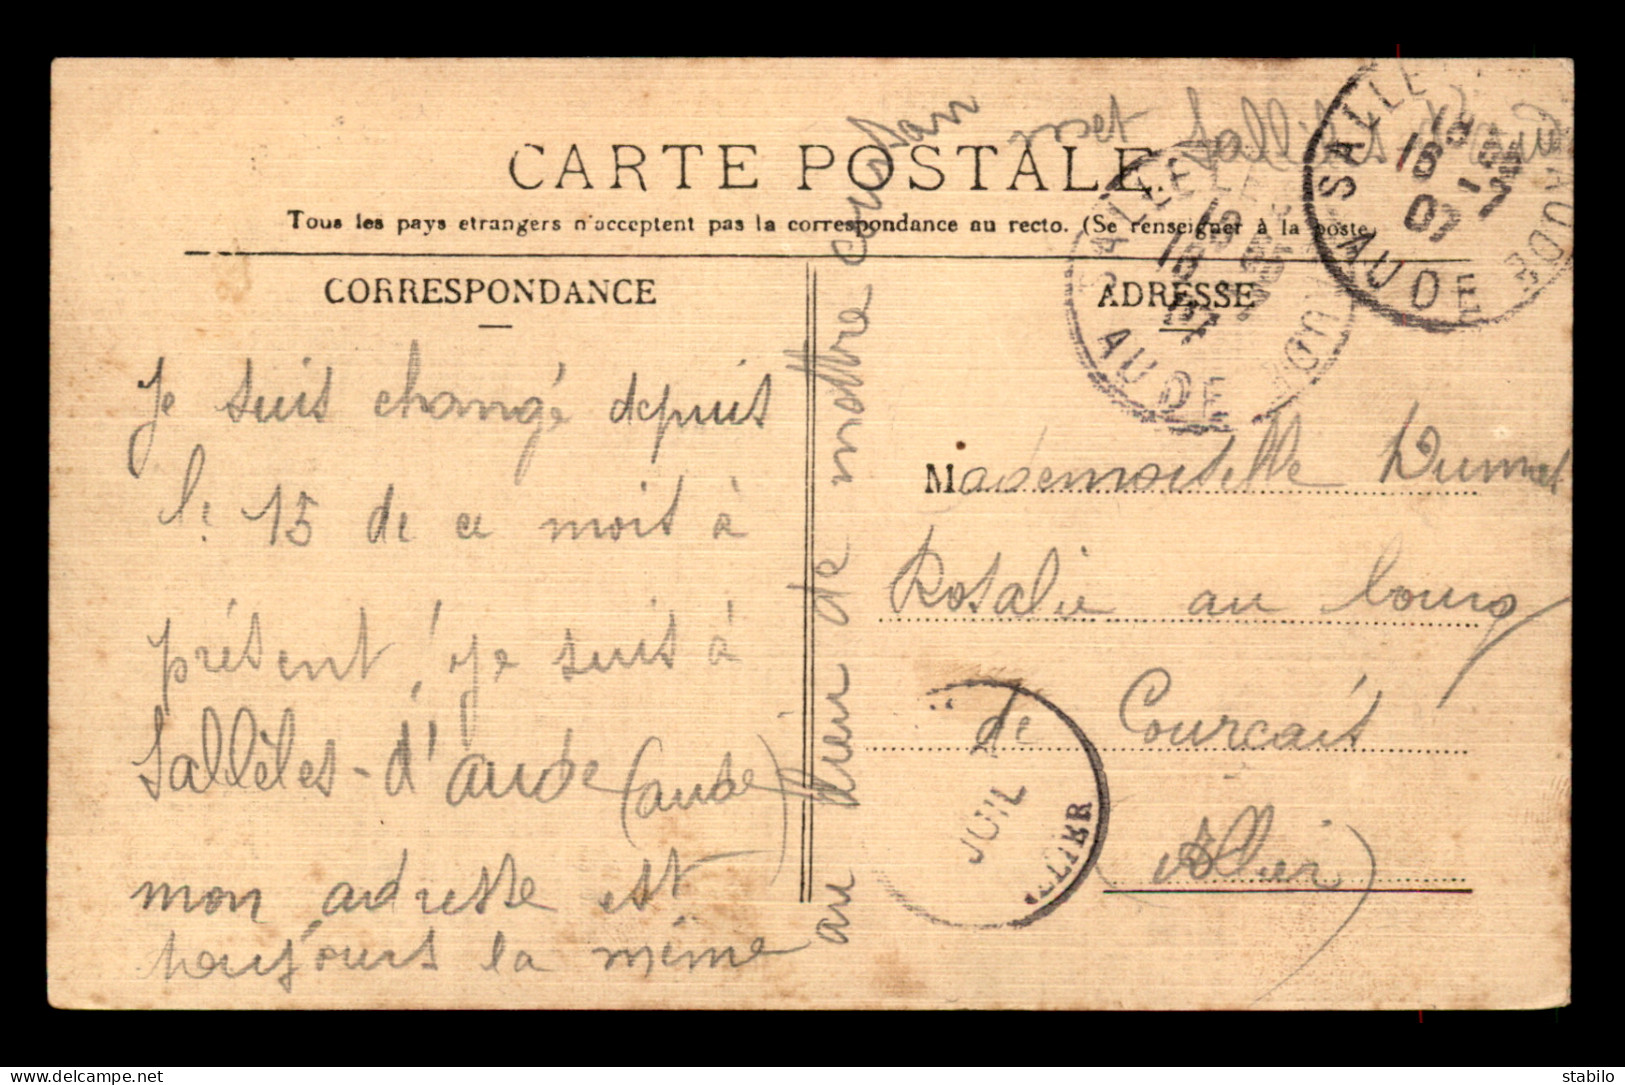 CARTE POSTALE
Tous les pays etrangers n'acceptent pas la correspondance au recto. (Se renseigner à la poste)
CORRESPONDANCE
Je suis changé depuis
le 15 de ce mois à
présent, je suis à
Sallèles-d'aude (aude)
mon adresse est
toujours la même
au lieu de mettre coursan
mset Sallèles d'aude
ADRESSE
Mademoiselle Dumet
Rosalie au bourg
de Courçais
(Allier)
SALLELES D'AUDE
18
07
AUDE
SALLELES D'AUDE
18
AUDE
JUIL
ALLIER
stabilo